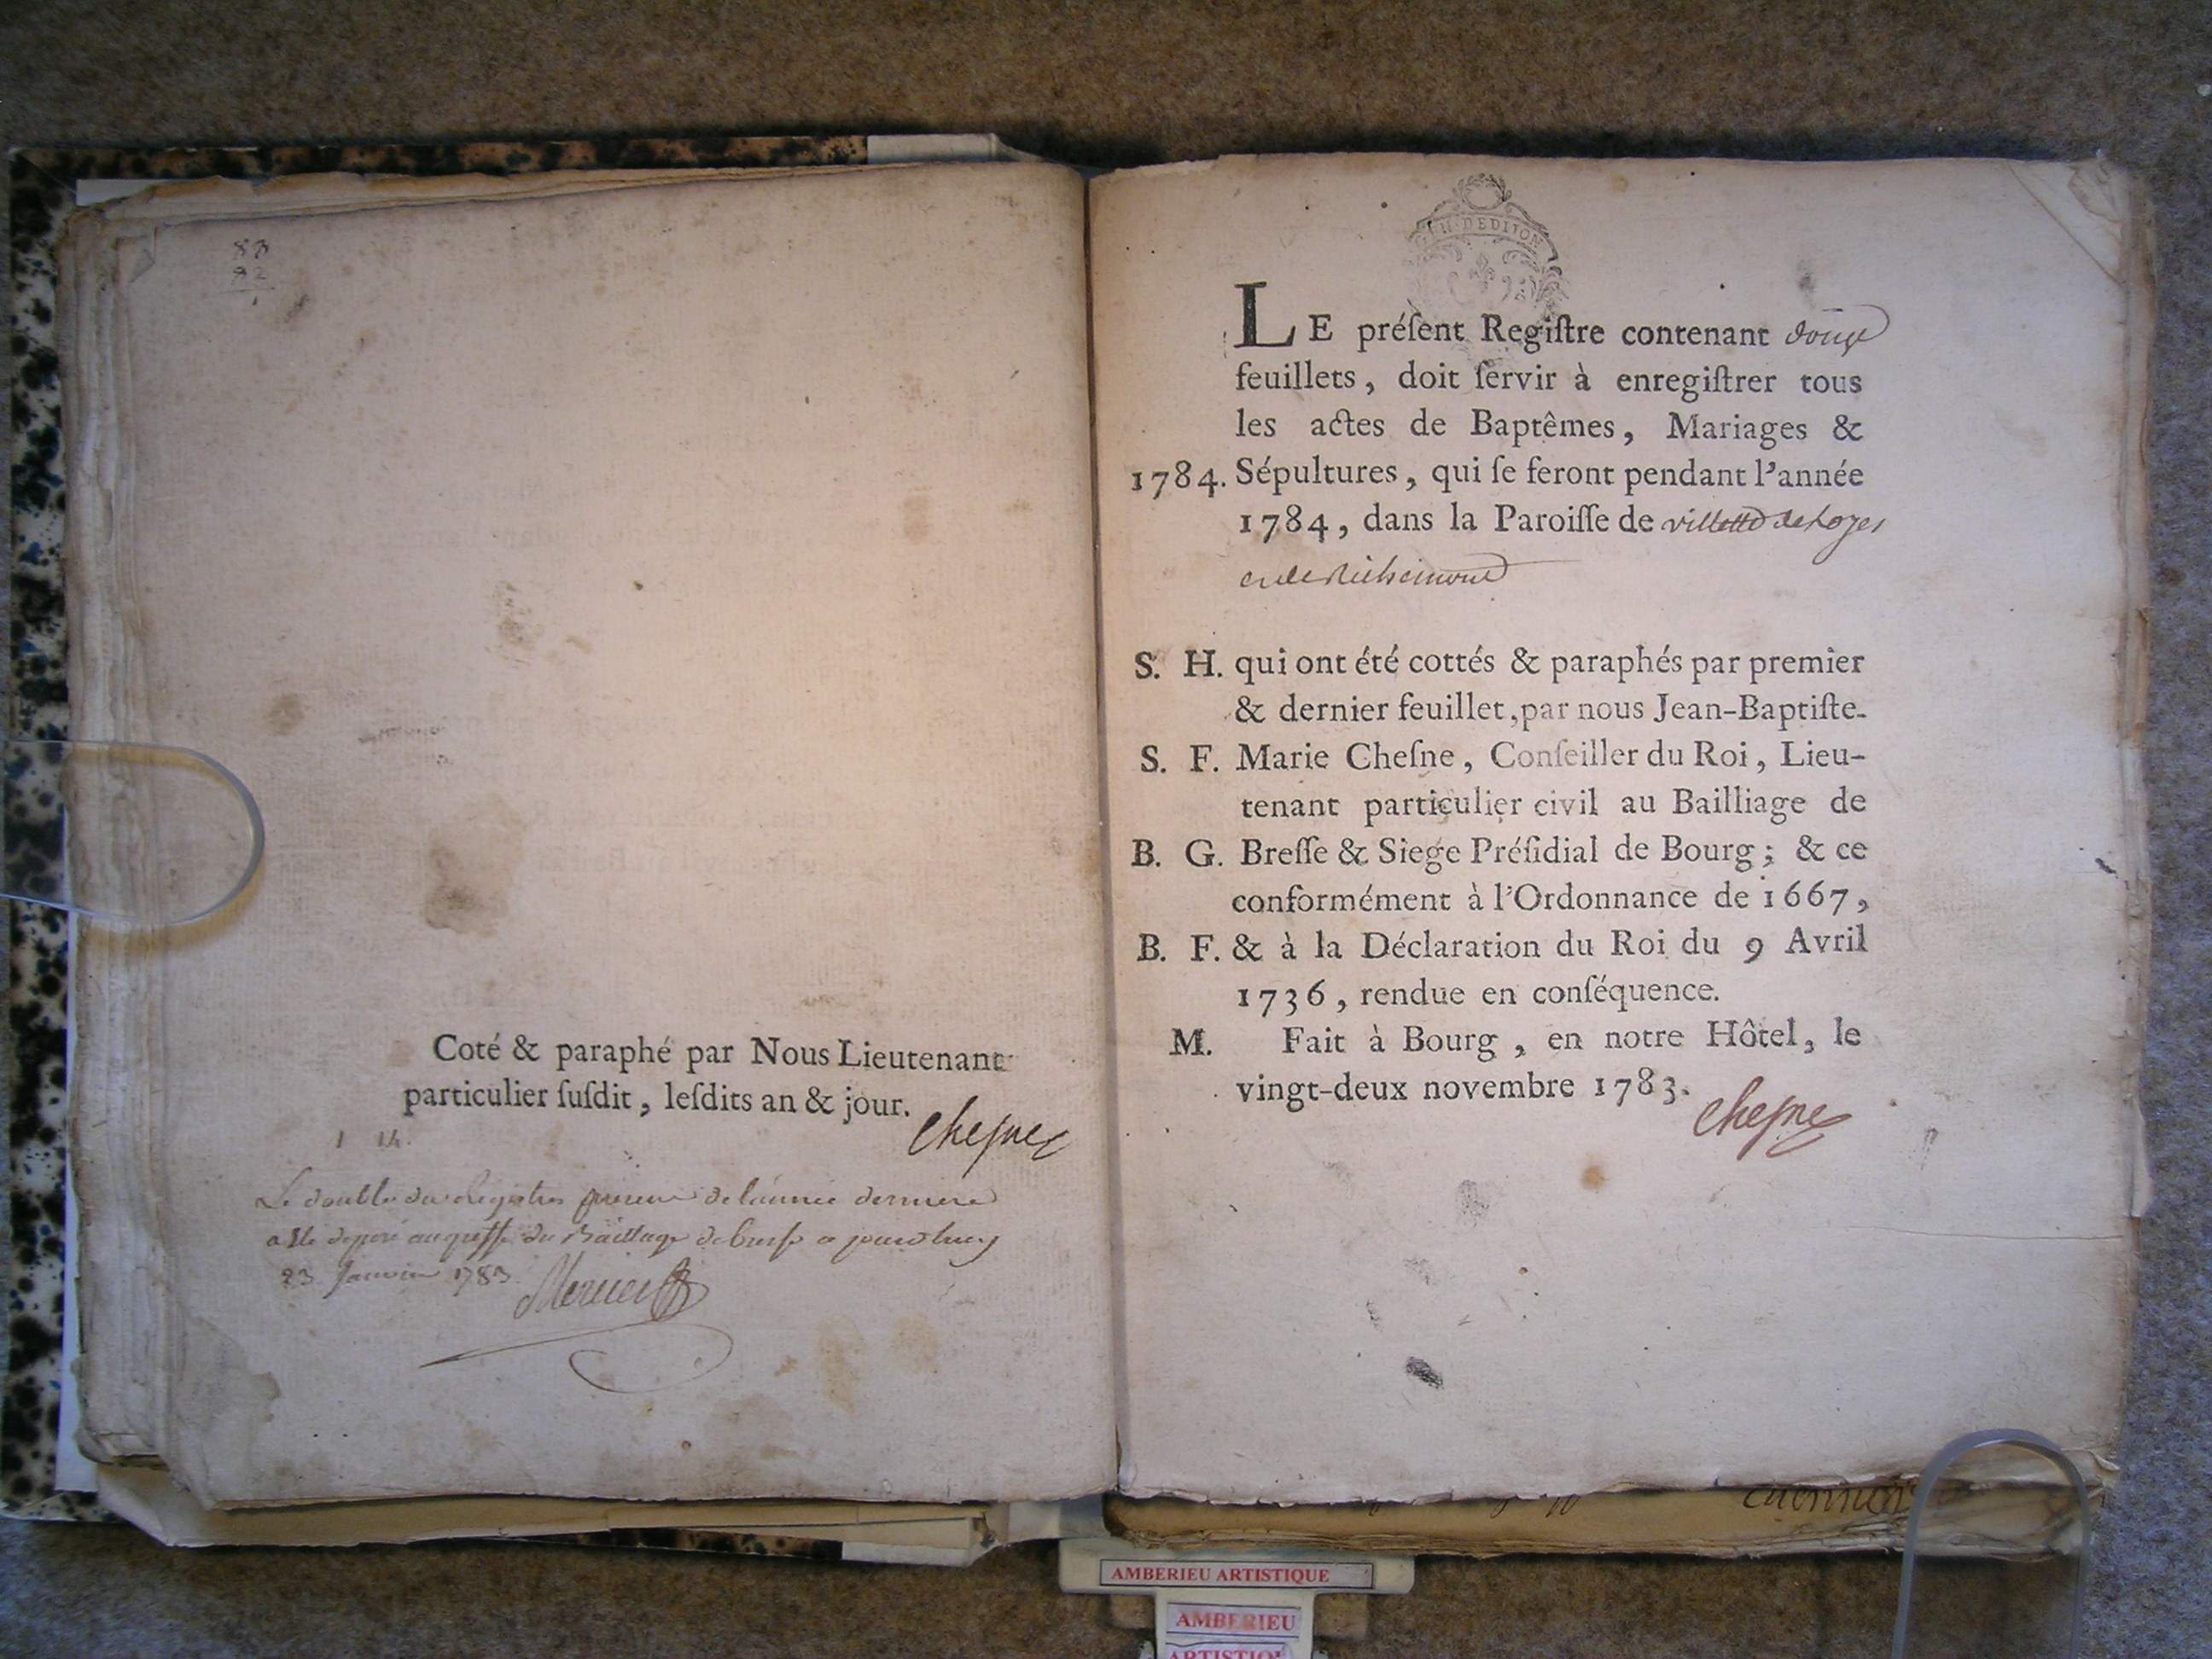 83
82
Coté & paraphé par Nous Lieutenant
particulier ſuſdit, leſdits an & jour.
Cheſne
1 14.
Le double du Registre de l'année derniere
a été déposé au greffe du Bailliage de bresse a jourdhuy
23 Janvier 1783.
Mercier
GEN·DE DIJON
LE préſent Regiſtre contenant douze
feuillets, doit ſervir à enregiſtrer tous
les actes de Baptêmes, Mariages &
1784. Sépultures, qui ſe feront pendant l'année
1784, dans la Paroiſſe de villette de Loyes
et de Richemont
S. H. qui ont été cottés & paraphés par premier
& dernier feuillet, par nous Jean-Baptiſte-
S. F. Marie Cheſne, Conſeiller du Roi, Lieu-
tenant particulier civil au Bailliage de
B. G. Breſſe & Siege Préſidial de Bourg; & ce
conformément à l'Ordonnance de 1667,
B. F. & à la Déclaration du Roi du 9 Avril
1736, rendue en conſéquence.
M. Fait à Bourg, en notre Hôtel, le
vingt-deux novembre 1783.
Cheſne
AMBERIEU ARTISTIQUE
AMBERIEU
ARTISTIQUE